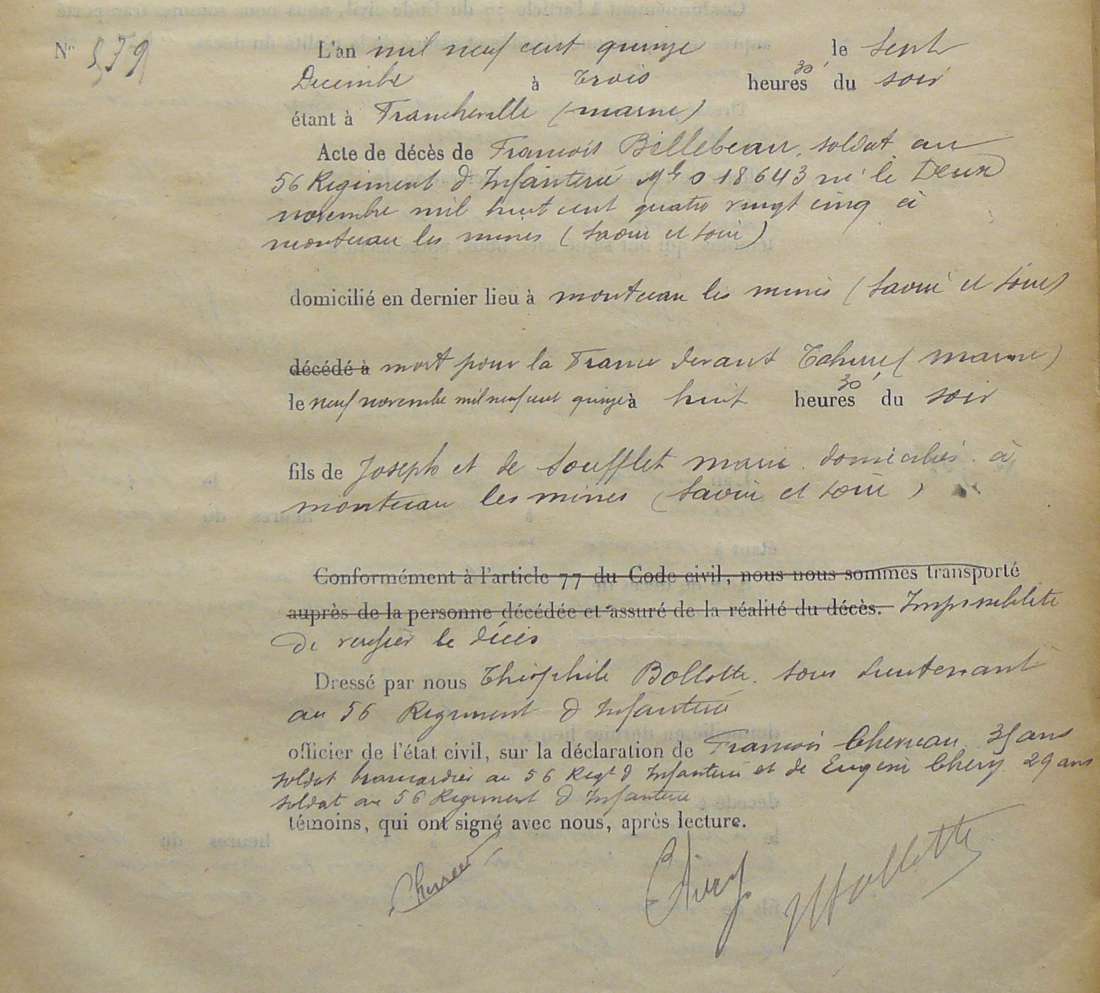 N° 579
L'an mil neuf cent quinze le sept
Decembre à trois heures 30 du soir
étant à Francheville (marne)
Acte de décès de François Billebeau. soldat au
56 Regiment d'Infanterie Mle 018643 né le Deux
novembre mil huit cent quatre vingt cinq à
montceau les mines (saone et loire)
domicilié en dernier lieu à montceau les mines (saone et loire)
décédé à mort pour la France devant Tahure (marne)
le neuf novembre mil neuf cent quinze à huit heures 30 du soir
fils de Joseph et de Soufflet marie. domiciliés à
montceau les mines (saone et loire)
Conformément à l'article 77 du Code civil, nous nous sommes transporté
auprès de la personne décédée et assuré de la réalité du décès. Impossibilité
De verifier le décès
Dressé par nous Théophile Bollotte. sous lieutenant
au 56 Regiment d'Infanterie
officier de l'état civil, sur la déclaration de François Cherreau, 35 ans
soldat brancardier au 56 Regt d'Infanterie et de Eugène Chéry 29 ans
soldat au 56 Regiment d'Infanterie
témoins, qui ont signé avec nous, après lecture.
Chéry Bollotte